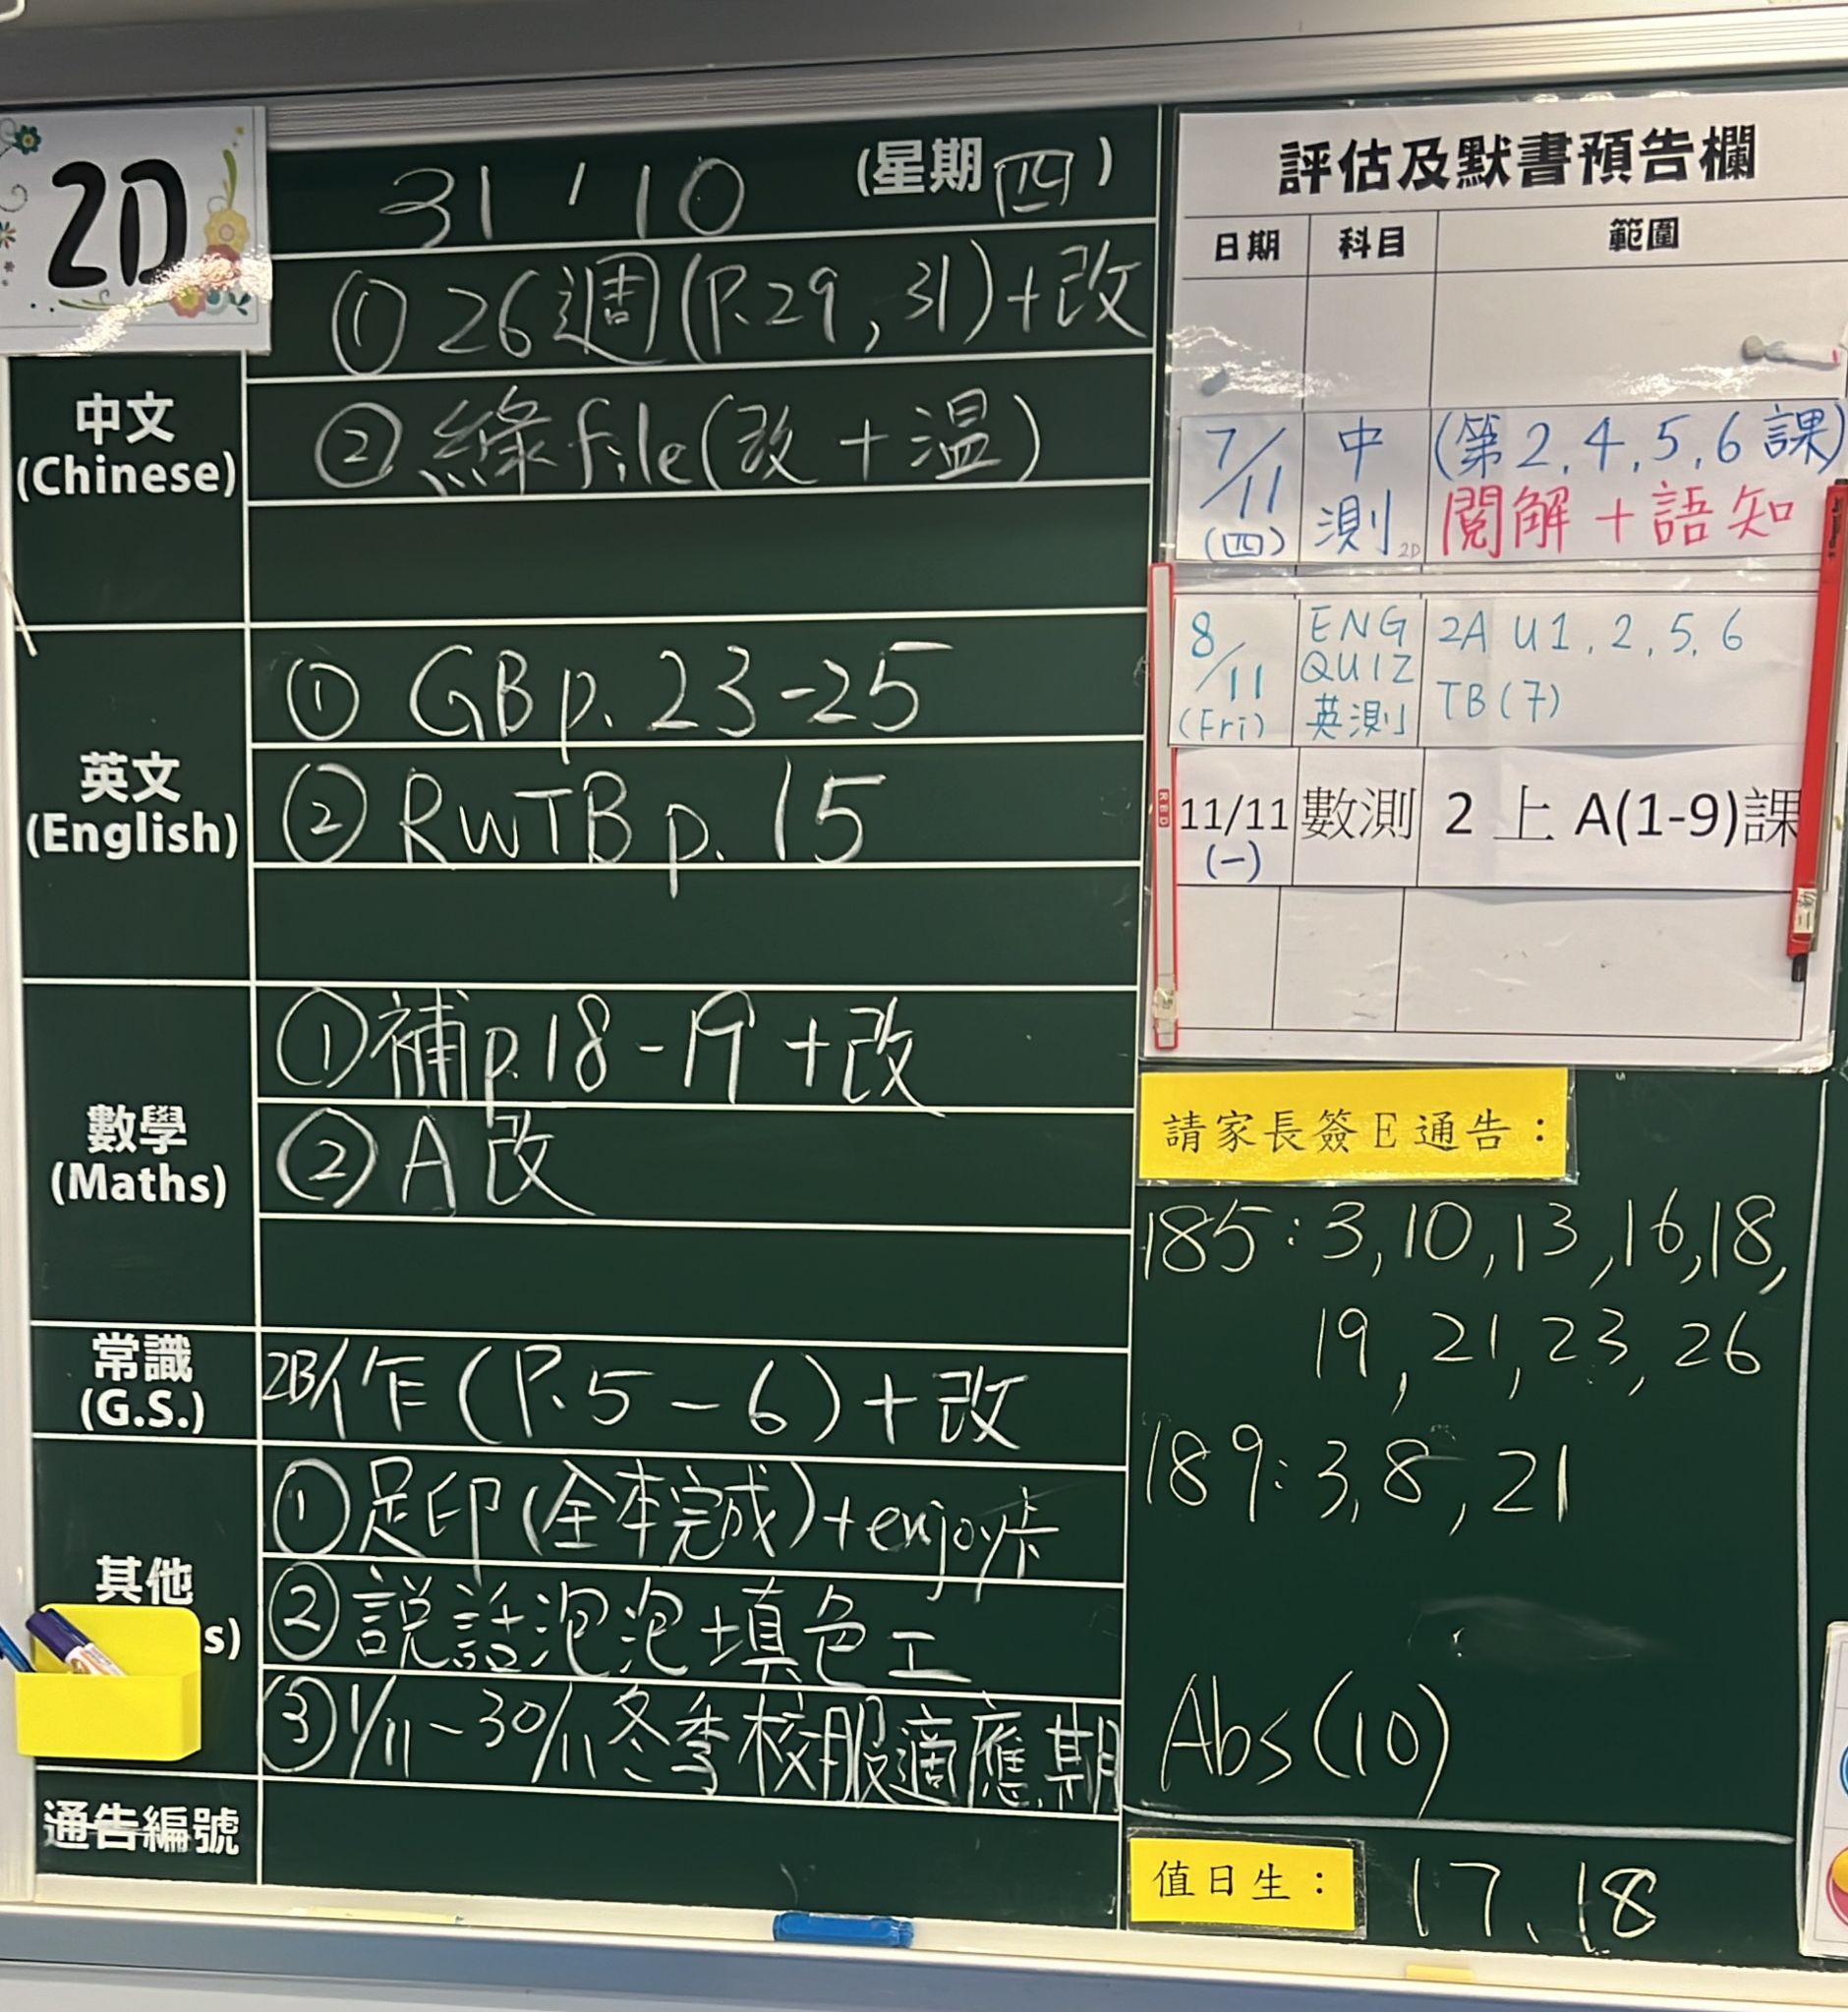 2D
31 / 10 (星期四)
中文
(Chinese)
① 26週(P.29, 31)+改
② 綠file(改+溫)
英文
(English)
① GB p. 23-25
② RWTB p. 15
數學
(Maths)
① 補p.18-19+改
② A改
常識
(G.S.)
2B/作(P.5-6)+改
其他
s)
① 足印(全本完成)+enjoy卡
② 説話泡泡+填色工
③ 1/11~30/11冬季校服適應期
通告編號
評估及默書預告欄
日期 科目 範圍
7/11 (四) 中測 2D (第2,4,5,6課)
閱解+語知
8/11 (Fri) ENG QUIZ 英測 2A U1,2,5,6
TB(7)
11/11 (一) 數測 2上A(1-9)課
請家長簽E通告：
185:3,10,13,16,18,
19,21,23,26
189:3,8,21
Abs(10)
值日生： 17、18